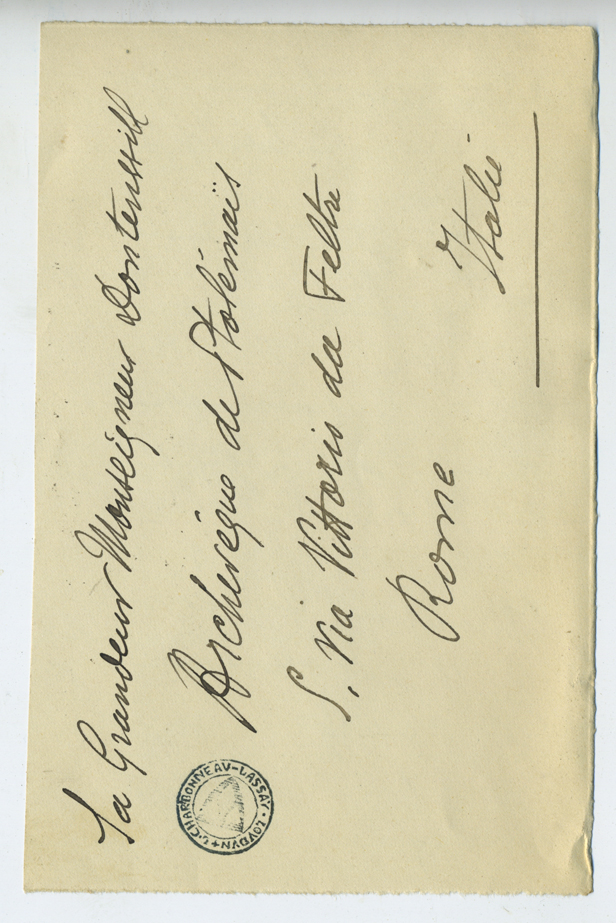 Sa Grandeur Monseigneur Dontenwill
Archevêque de Ptolémaïs
5, Via Vittorio da Feltre
Rome
Italie
L·CHARBONNEAV-LASSAY·LOVDVN+